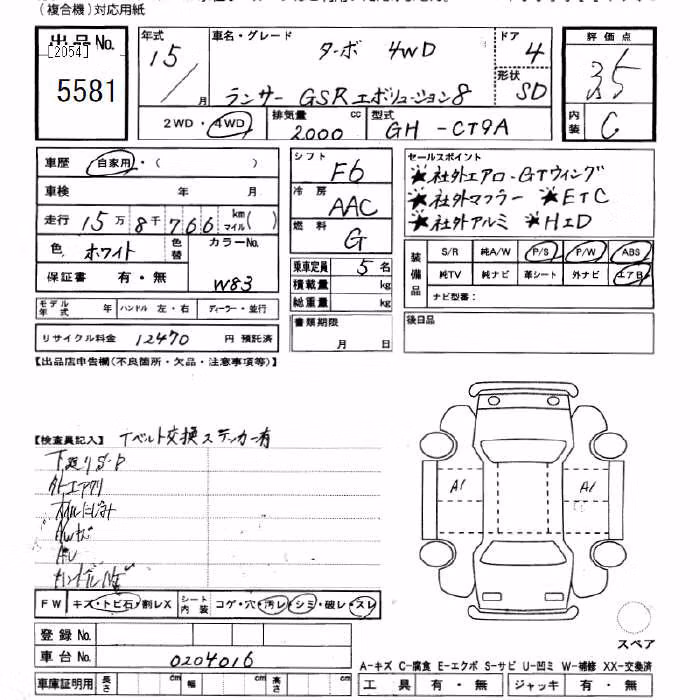 (複合機)対応用紙
出品No. 年式 車名・グレード ターボ 4WD ドア 4 評価点
[2054] 15 / 月 ランサー GSRエボリューション8 形状 SD 3.5
5581
2WD・4WD 排気量 2000 cc 型式 GH-CT9A 内装 C
車歴 自家用・( ) シフト F6 セールスポイント
★社外エアロ-GTウィング
車検 年 月 冷房 AAC ★社外マフラー ★ETC
走行 15万8千766 km マイル( ) 燃料 G ★社外アルミ ★HID
色 ホワイト 色替 カラーNo. W83
乗車定員 5名 装備品 S/R 純A/W P/S P/W ABS
保証書 有・無 積載量 kg 純TV 純ナビ 革シート 外ナビ エアB
総重量 kg ナビ型番:
モデル年式 年 ハンドル 左・右 ディーラー・並行
書類期限 月 日 後日品
リサイクル料金 12470 円 預託済
【出品店申告欄(不良箇所・欠品・注意事項等)】
【検査員記入】 Tベルト交換ステッカー有
下廻りS-P
オイルにじみ
AWキズ
ハンドルスレ
A1 A1
FW キズ・トビ石・割レX シート内装 コゲ・穴・汚レ・シミ・破レ・スレ
スペア
登録No.
車台No. 0204016
A-キズ C-腐食 E-エクボ S-サビ U-凹ミ W-補修 XX-交換済
車庫証明用 長さ cm 幅 cm 高さ cm 工具 有・無 ジャッキ 有・無